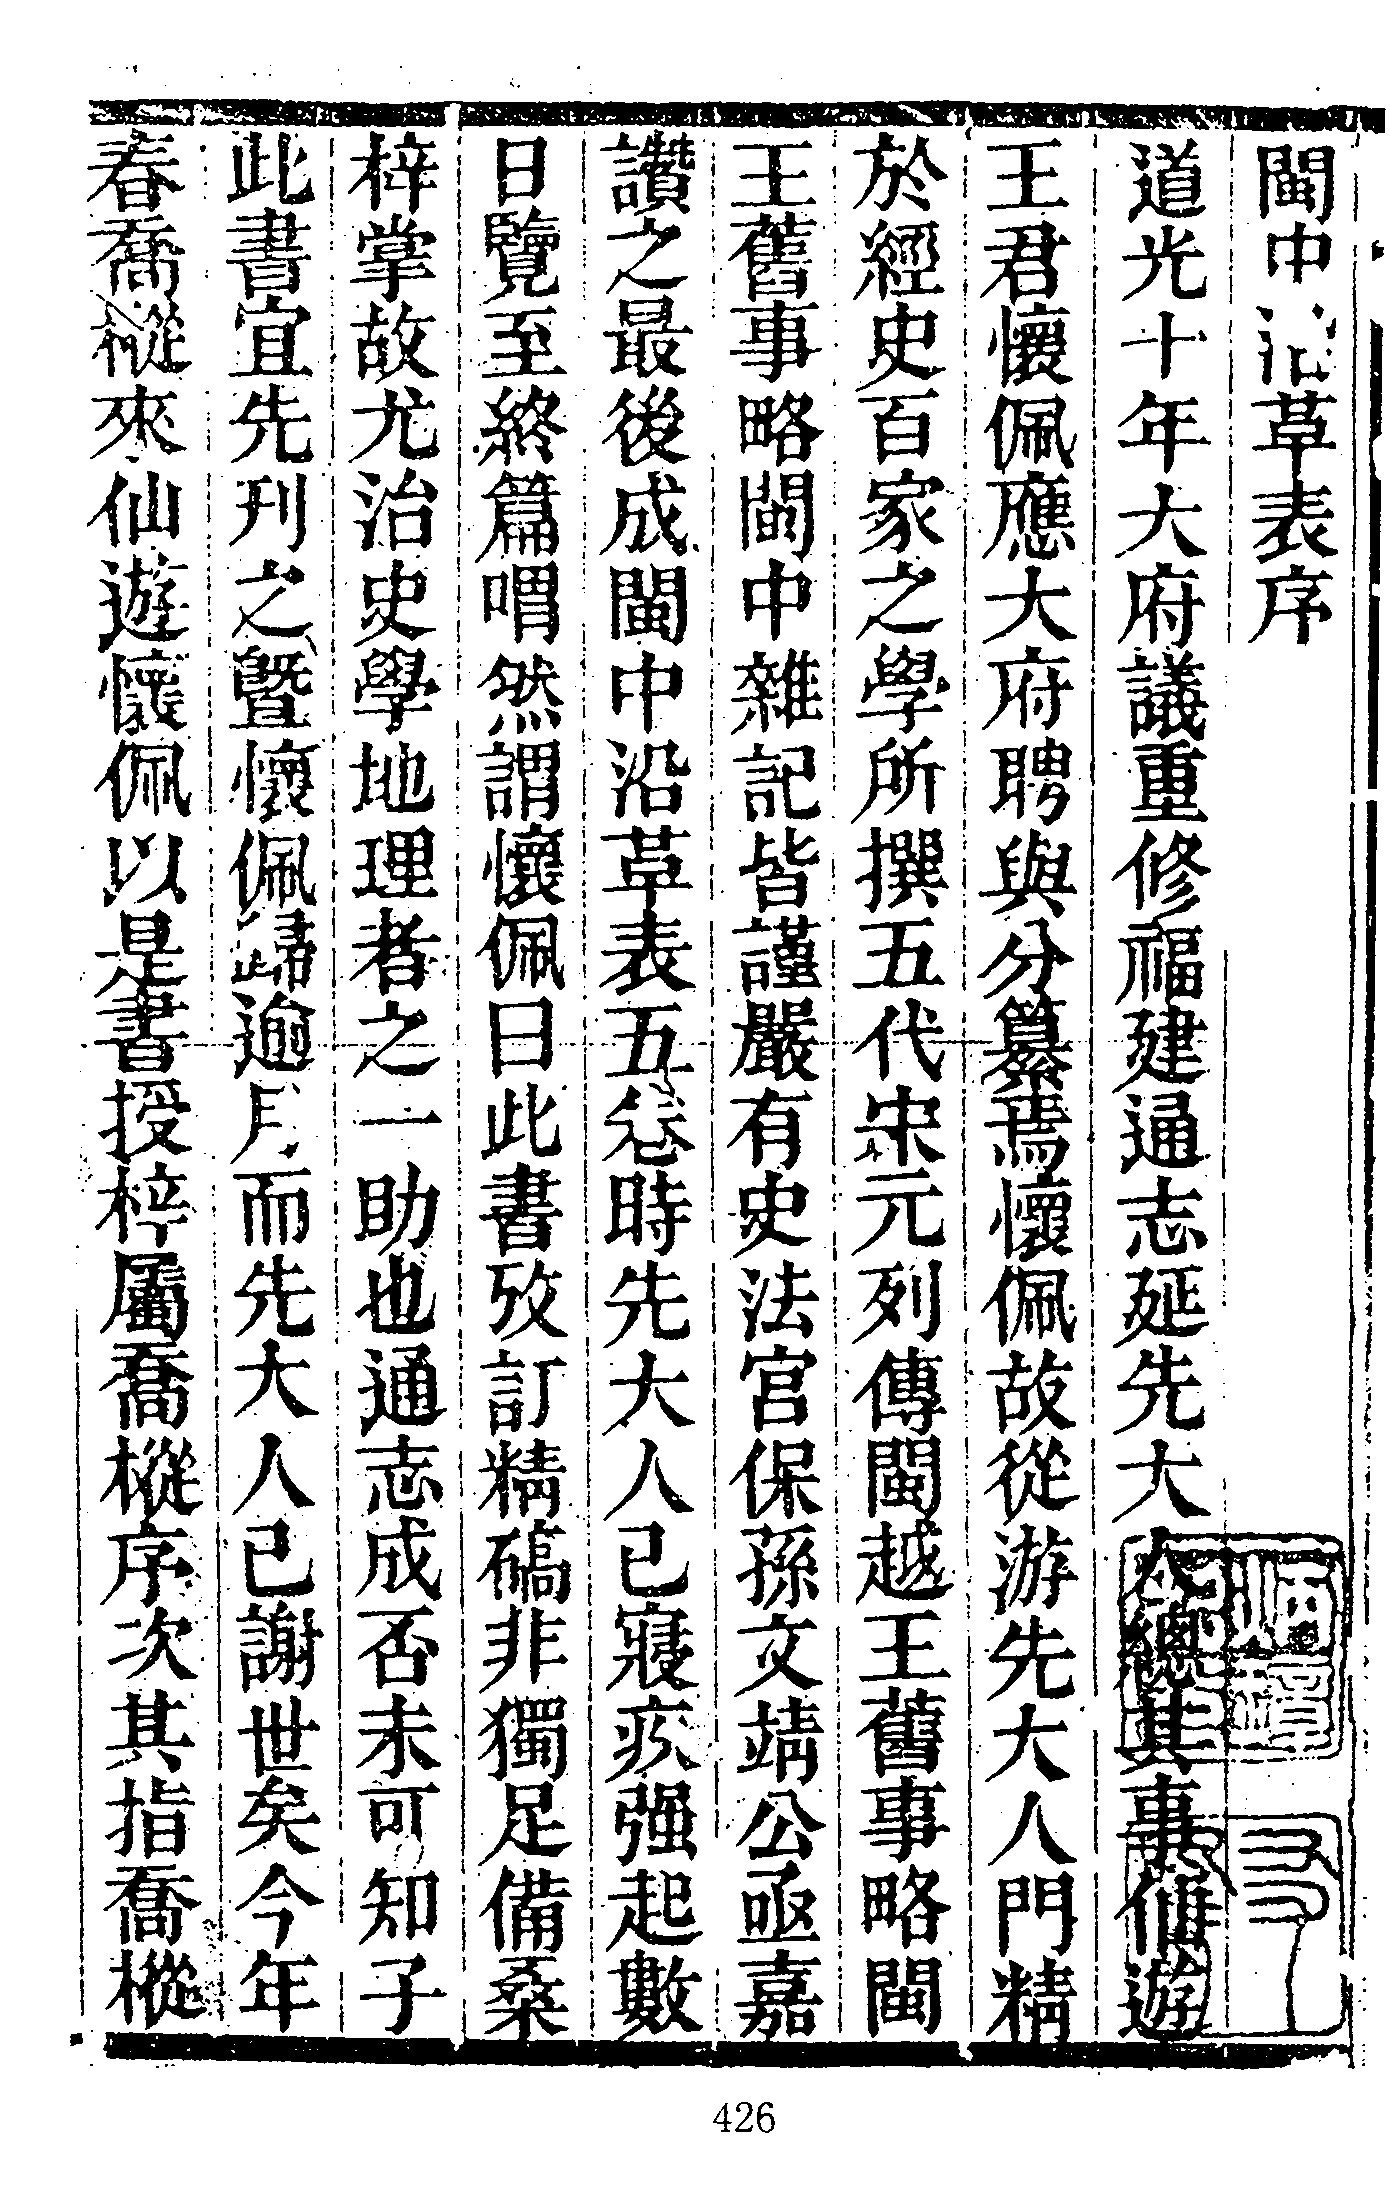 閩中沿革表序
道光十年大府議重修福建通志延先大人總其事仙遊
王君懷佩應大府聘與分纂焉懷佩故從游先大人門精
於經史百家之學所撰五代宋元列傳閩越王舊事略閩
王舊事略閩中雜記皆謹嚴有史法宮保孫文靖公亟嘉
讚之最後成閩中沿革表五卷時先大人已寢疾强起數
日覽至終篇喟然謂懷佩曰此書攷訂精碻非獨足備桑
梓掌故尤治史學地理者之一助也通志成否未可知子
此書宜先刊之曁懷佩歸逾月而先大人已謝世矣今年
春喬樅來仙遊懷佩以是書授梓屬喬樅序次其指喬樅
426